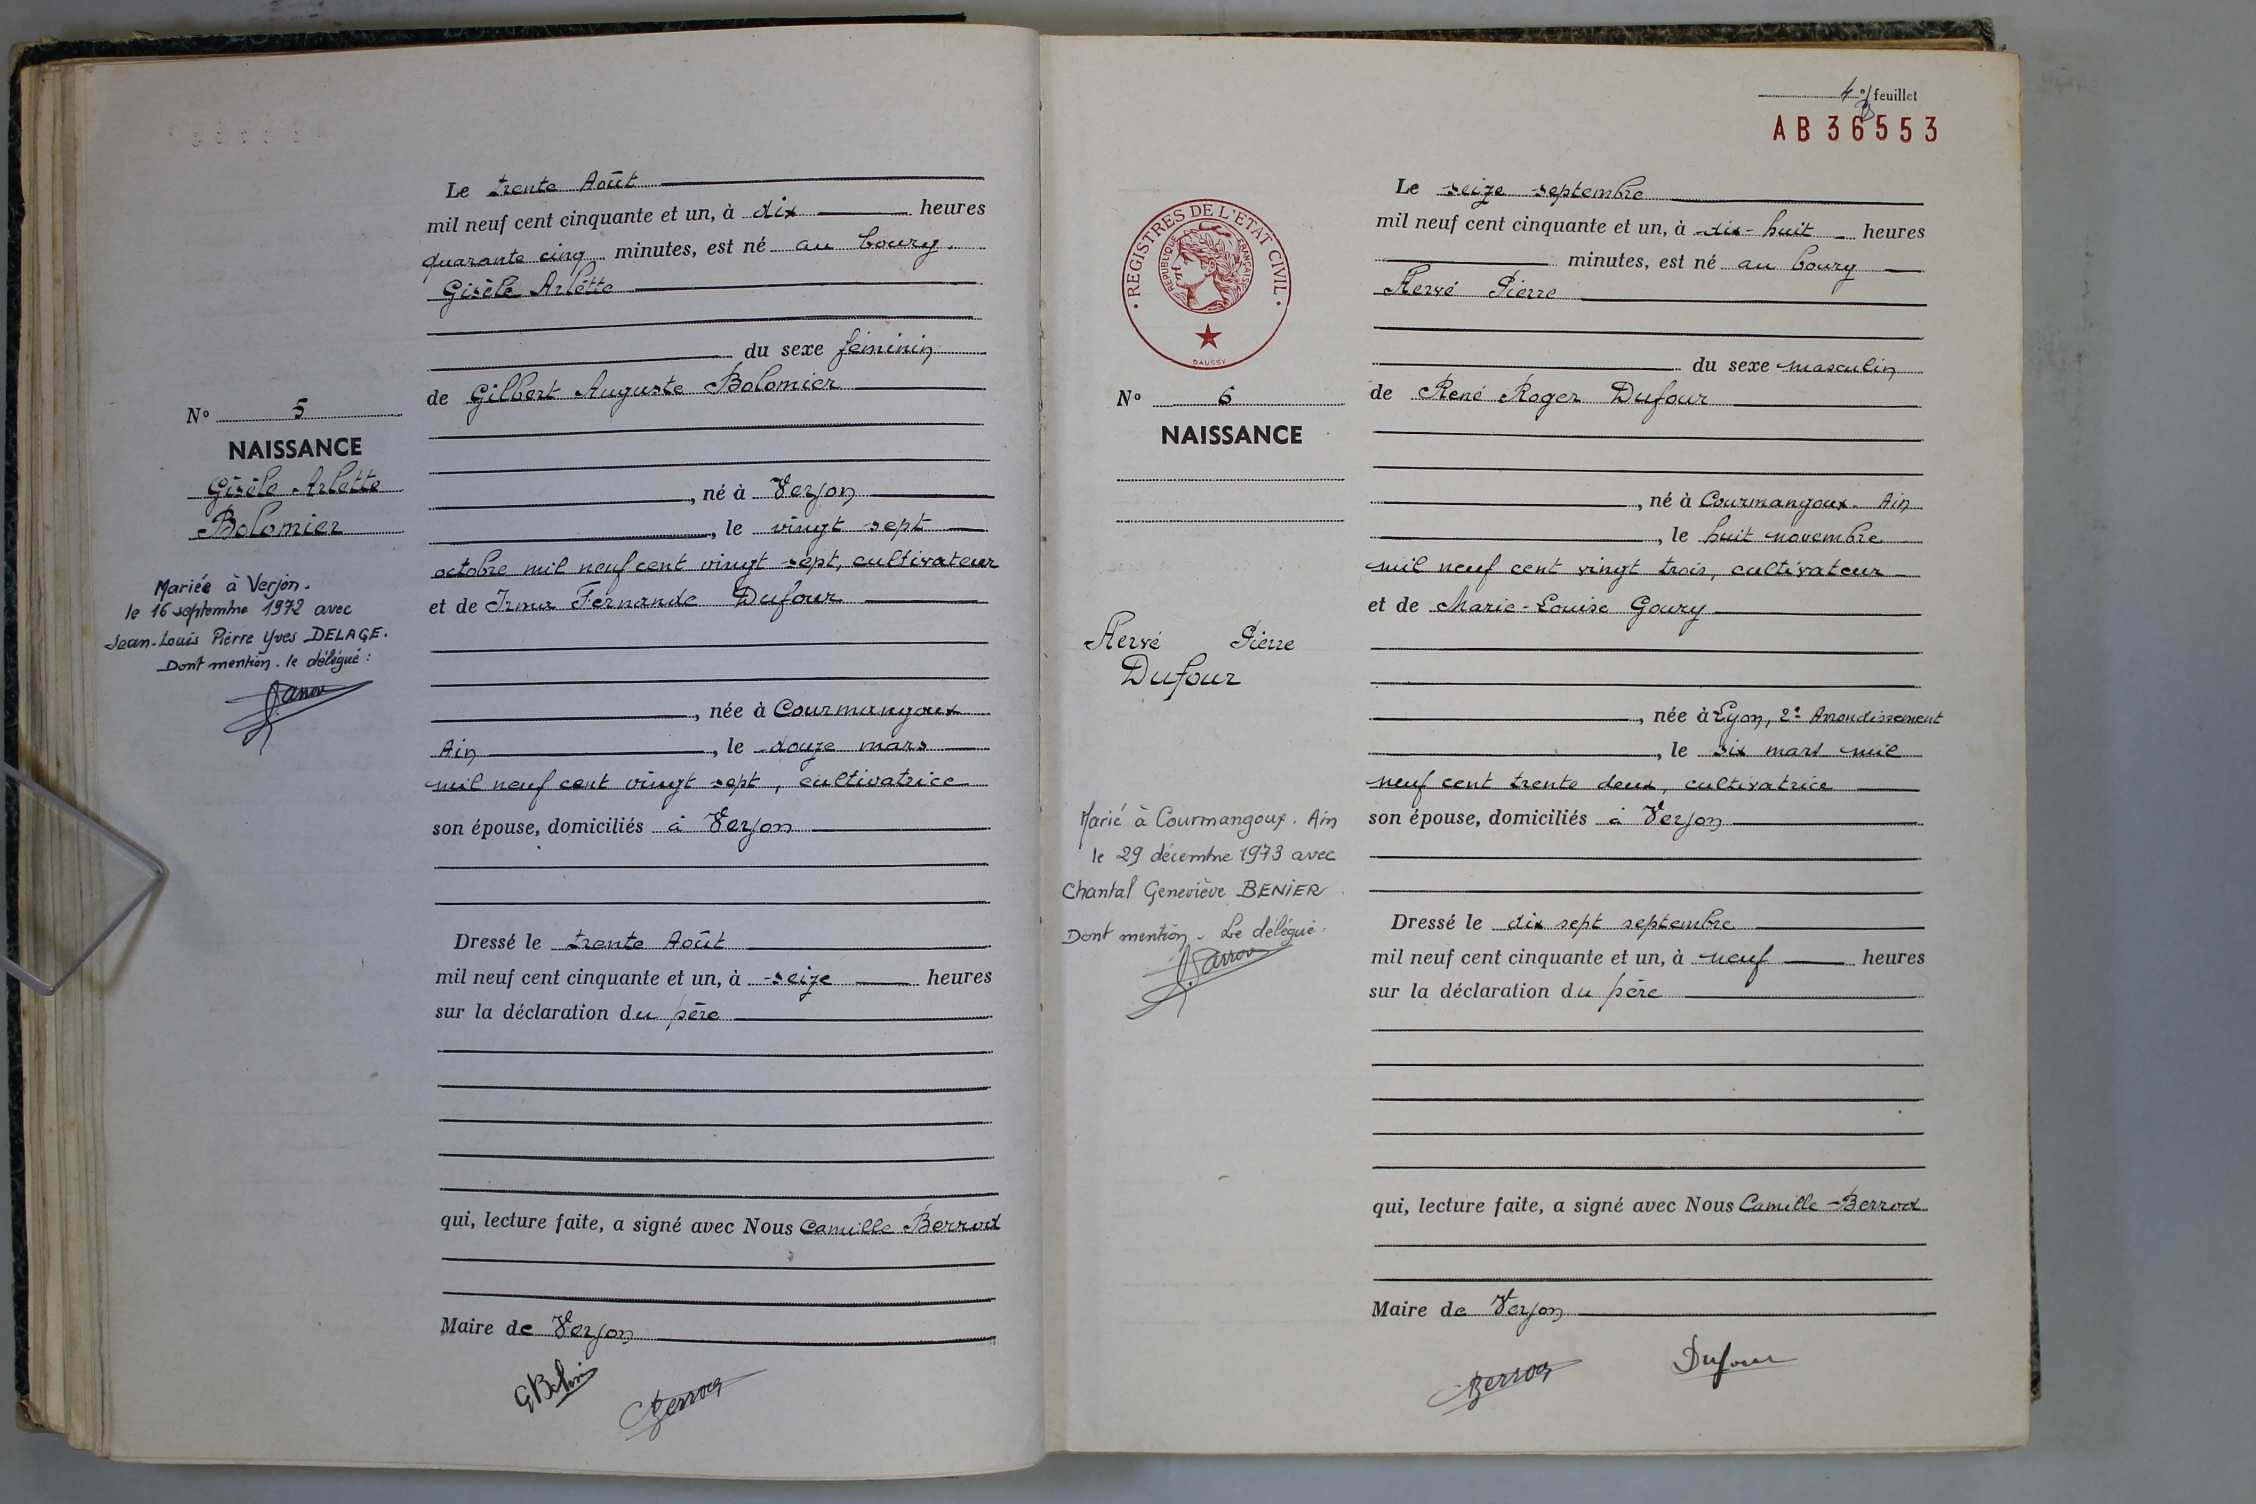 Le trente Août
mil neuf cent cinquante et un, à dix heures
quarante cinq minutes, est né au bourg
Gisèle Arlette
du sexe féminin
de Gilbert Auguste Bolomier
N° 5
NAISSANCE
Gisèle Arlette
Bolomier
, né à Verjon
, le vingt sept
octobre mil neuf cent vingt sept, cultivateur
et de Irma Fernande Dufour
Mariée à Verjon.
le 16 septembre 1972 avec
Jean-Louis Pierre Yves DELAGE.
Dont mention. le délégué :
, née à Courmangoux
Ain , le douze mars
mil neuf cent vingt sept, cultivatrice
son épouse, domiciliés à Verjon
Dressé le trente Août
mil neuf cent cinquante et un, à seize heures
sur la déclaration du père
qui, lecture faite, a signé avec Nous Camille Berrod
Maire de Verjon
4 feuillet
AB 36553
Le seize septembre
mil neuf cent cinquante et un, à dix-huit heures
minutes, est né au bourg
Hervé Pierre
du sexe masculin
de René Roger Dufour
REGISTRES DE L'ETAT CIVIL
REPUBLIQUE FRANÇAISE
DAUSSY
N° 6
NAISSANCE
, né à Courmangoux. Ain
, le huit novembre
mil neuf cent vingt trois, cultivateur
et de Marie-Louise Goury
Hervé Pierre
Dufour
, née à Lyon, 2e Arrondissement
, le six mars mil
neuf cent trente deux, cultivatrice
son épouse, domiciliés à Verjon
Marié à Courmangoux. Ain
le 29 décembre 1973 avec
Chantal Geneviève BENIER
Dont mention. Le délégué.
Dressé le dix sept septembre
mil neuf cent cinquante et un, à neuf heures
sur la déclaration du père
qui, lecture faite, a signé avec Nous Camille Berrod
Maire de Verjon
Dufour